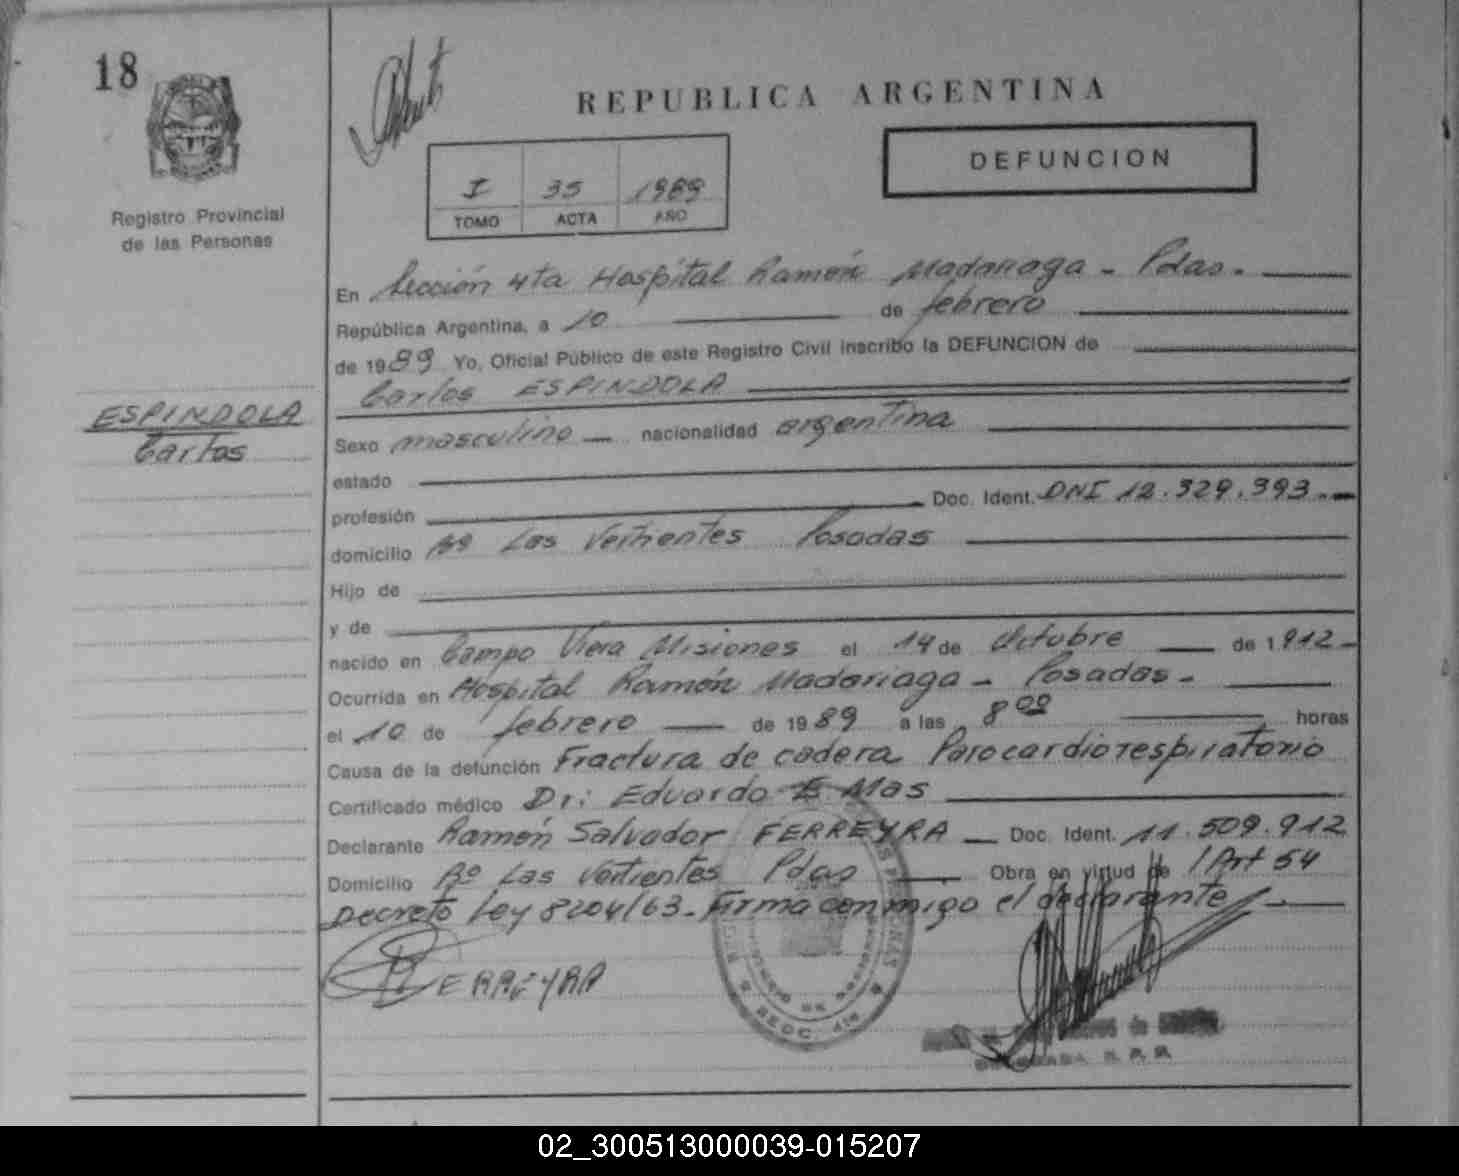 18
REPUBLICA ARGENTINA
DEFUNCION
I 35 1989
TOMO ACTA AÑO
Registro Provincial
de las Personas
En Sección 4ta Hospital Ramón Madariaga - Pdas.
República Argentina, a 10 de febrero
de 1989 Yo, Oficial Público de este Registro Civil inscribo la DEFUNCION de
Carlos ESPINDOLA
ESPINDOLA
Carlos
Sexo masculino nacionalidad argentina
estado
profesión Doc. Ident. DNI 12.329.393.-
domicilio Bº Las Vertientes Posadas
Hijo de
y de
nacido en Campo Viera Misiones el 14 de Octubre de 1912-
Ocurrida en Hospital Ramón Madariaga - Posadas-
el 10 de febrero de 1989 a las 8 00 horas
Causa de la defunción Fractura de cadera Parocardiorespiratorio
Certificado médico Dr: Eduardo E. Mas
Declarante Ramón Salvador FERREYRA Doc. Ident. 11.509.912
Domicilio Bº Las Vertientes Pdas Obra en virtud de /Art 54
Decreto Ley 8204/63- Firma conmigo el declarante
FERREYRA
SECC. 4ta
02_300513000039-015207